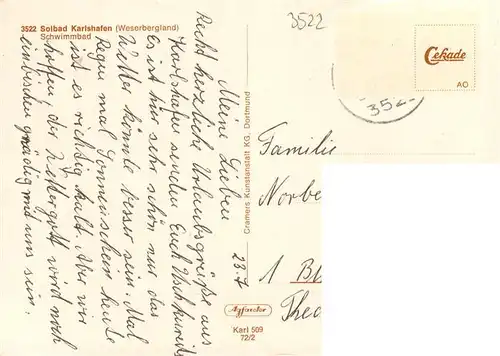 3522 Solbad Karlshafen (Weserbergland)
Schwimmbad
Meine Lieben
Recht herzliche Urlaubsgrüße aus
Karlshafen senden Euch
Es ist hier sehr schön nur das
Wetter könnte besser sein. Mal
Regen mal Sonnenschein heute
ist es richtig kalt Aber wir
hoffen, der Wettergott wird noch
ein bischen gnädig mit uns sein.
23.7
Cramers Kunstanstalt KG. Dortmund
Agfacolor
Karl 509
72/2
3522
Cekade
AO
352
Familie
Norbe
1 B
Theo